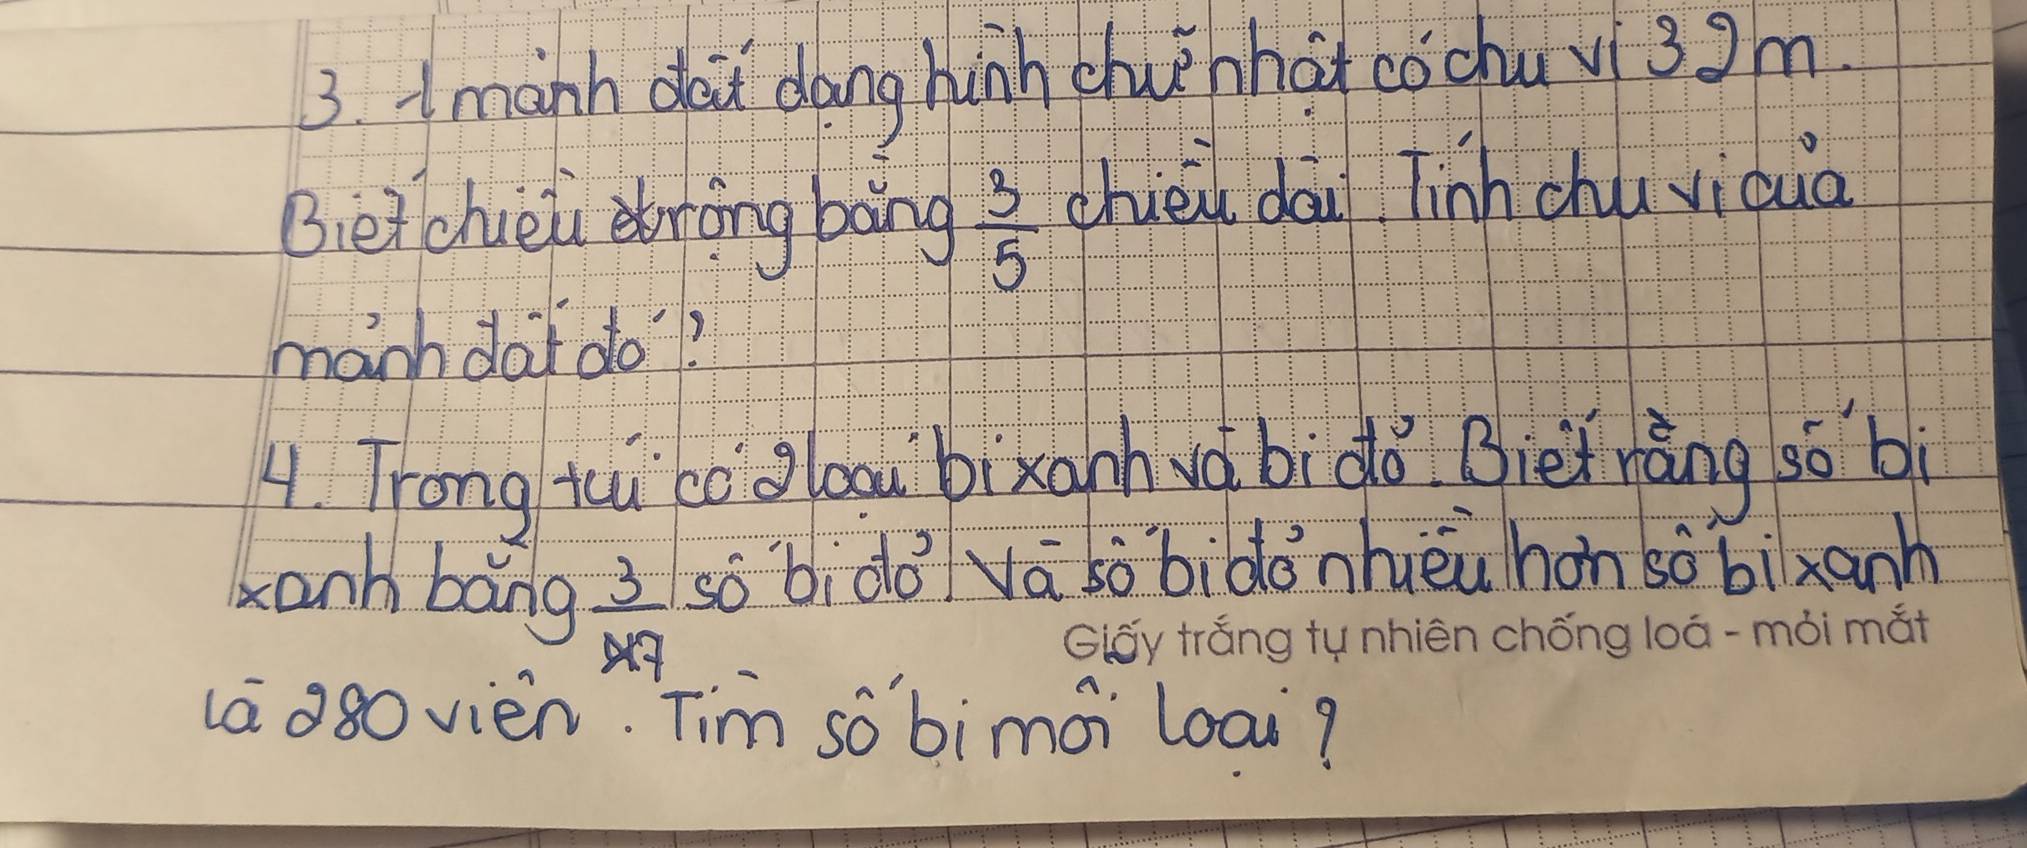 3. 1 mảnh đất dạng hình chữ nhật có chu vi 32m.
Biết chiều rộng bằng 3/5 chiều dài. Tính chu vi của
mảnh đất đó?
4. Trong túi có 2 loại bi xanh và bi đỏ. Biết rằng số bi
xanh bằng 3/7 số bi đỏ. Và số bi đỏ nhiều hơn số bi xanh
Giấy trắng tự nhiên chống loá - mỏi mắt
là 280 viên. Tìm số bi mỗi loại?